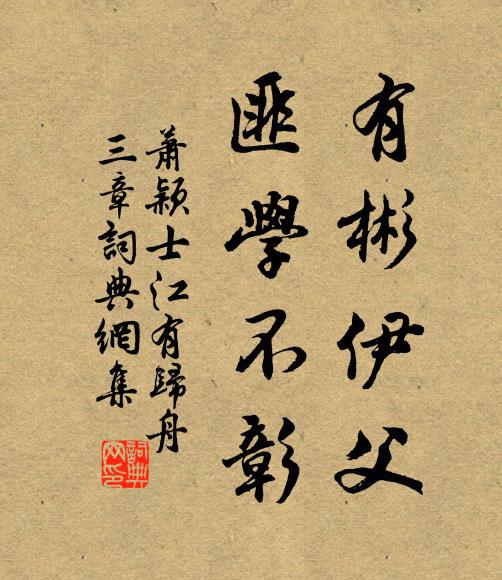 有彬伊父
匪學不彰
蕭穎士江有歸舟
三章詞典網集
詞典
网印